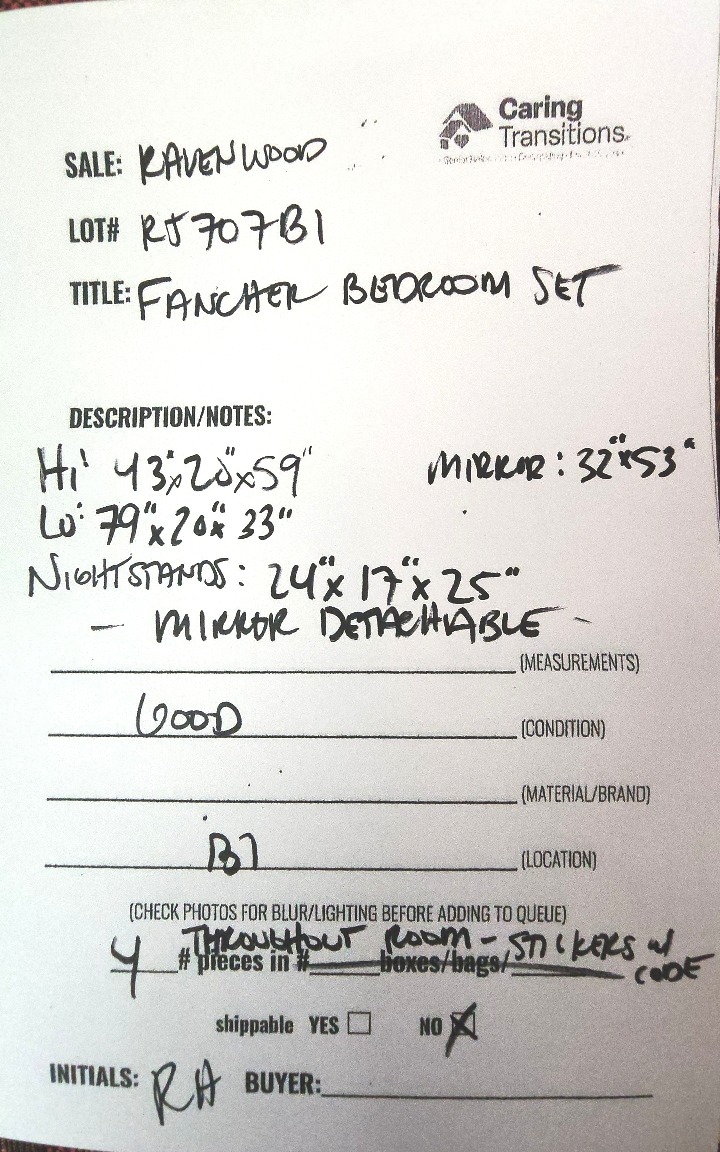 Caring
Transitions
SALE: RAVENWOOD
LOT# RJ707B1
TITLE: FANCHER BEDROOM SET
DESCRIPTION/NOTES:
Hi: 43"x20"x59" MIRROR: 32"x53"
Lo: 79"x20"x33"
NIGHTSTANDS: 24"x17"x25"
- MIRROR DETACHABLE -
(MEASUREMENTS)
GOOD (CONDITION)
(MATERIAL/BRAND)
B1 (LOCATION)
(CHECK PHOTOS FOR BLUR/LIGHTING BEFORE ADDING TO QUEUE)
THROUGHOUT ROOM - STICKERS w/
4 # pieces in # boxes/bags/ CODE
shippable YES NO X
INITIALS: RH BUYER: